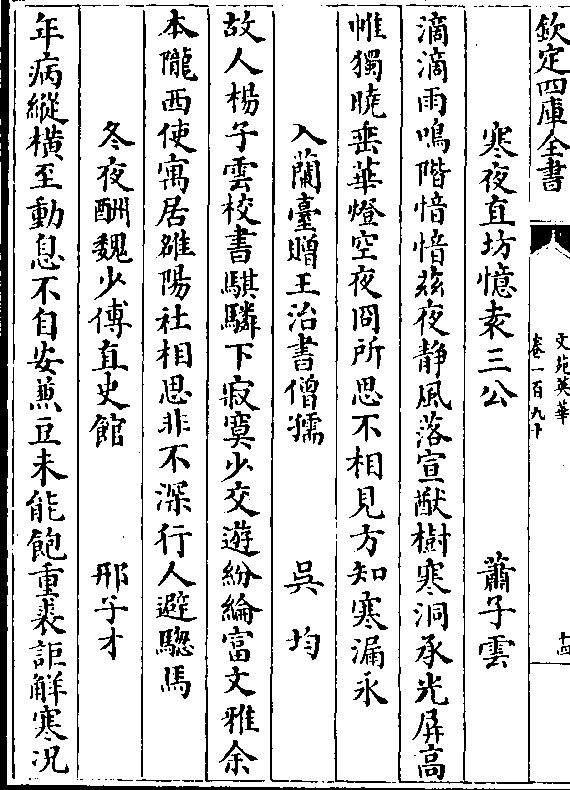 欽定四庫全書
文苑英華
卷一百九十
十四
寒夜直坊憶袁三公
蕭子雲
滴滴雨鳴階愔愔兹夜静風落宣猷樹寒洞承光屏高
帷獨曉垂華燈空夜冏所思不相見方知寒漏永
入蘭臺贈王治書僧孺
吳均
故人楊子雲校書騏驎下寂寞少交遊紛綸富文雅余
本隴西使寓居雒陽社相思非不深行人避驄馬
冬夜酬魏少傅直史館
邢子才
年病縱橫至動息不自安兼豆未能飽重裘詎解寒况